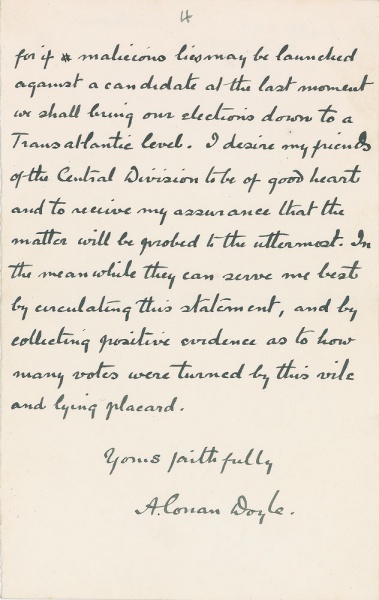 4
for if malicious lies may be launched
against a candidate at the last moment
we shall bring our elections down to a
Transatlantic level. I desire my friends
of the Central Division to be of good heart
and to receive my assurance that the
matter will be probed to the uttermost. In
the meanwhile they can serve me best
by circulating this statement, and by
collecting positive evidence as to how
many votes were turned by this vile
and lying placard.
Yours faithfully
A. Conan Doyle.